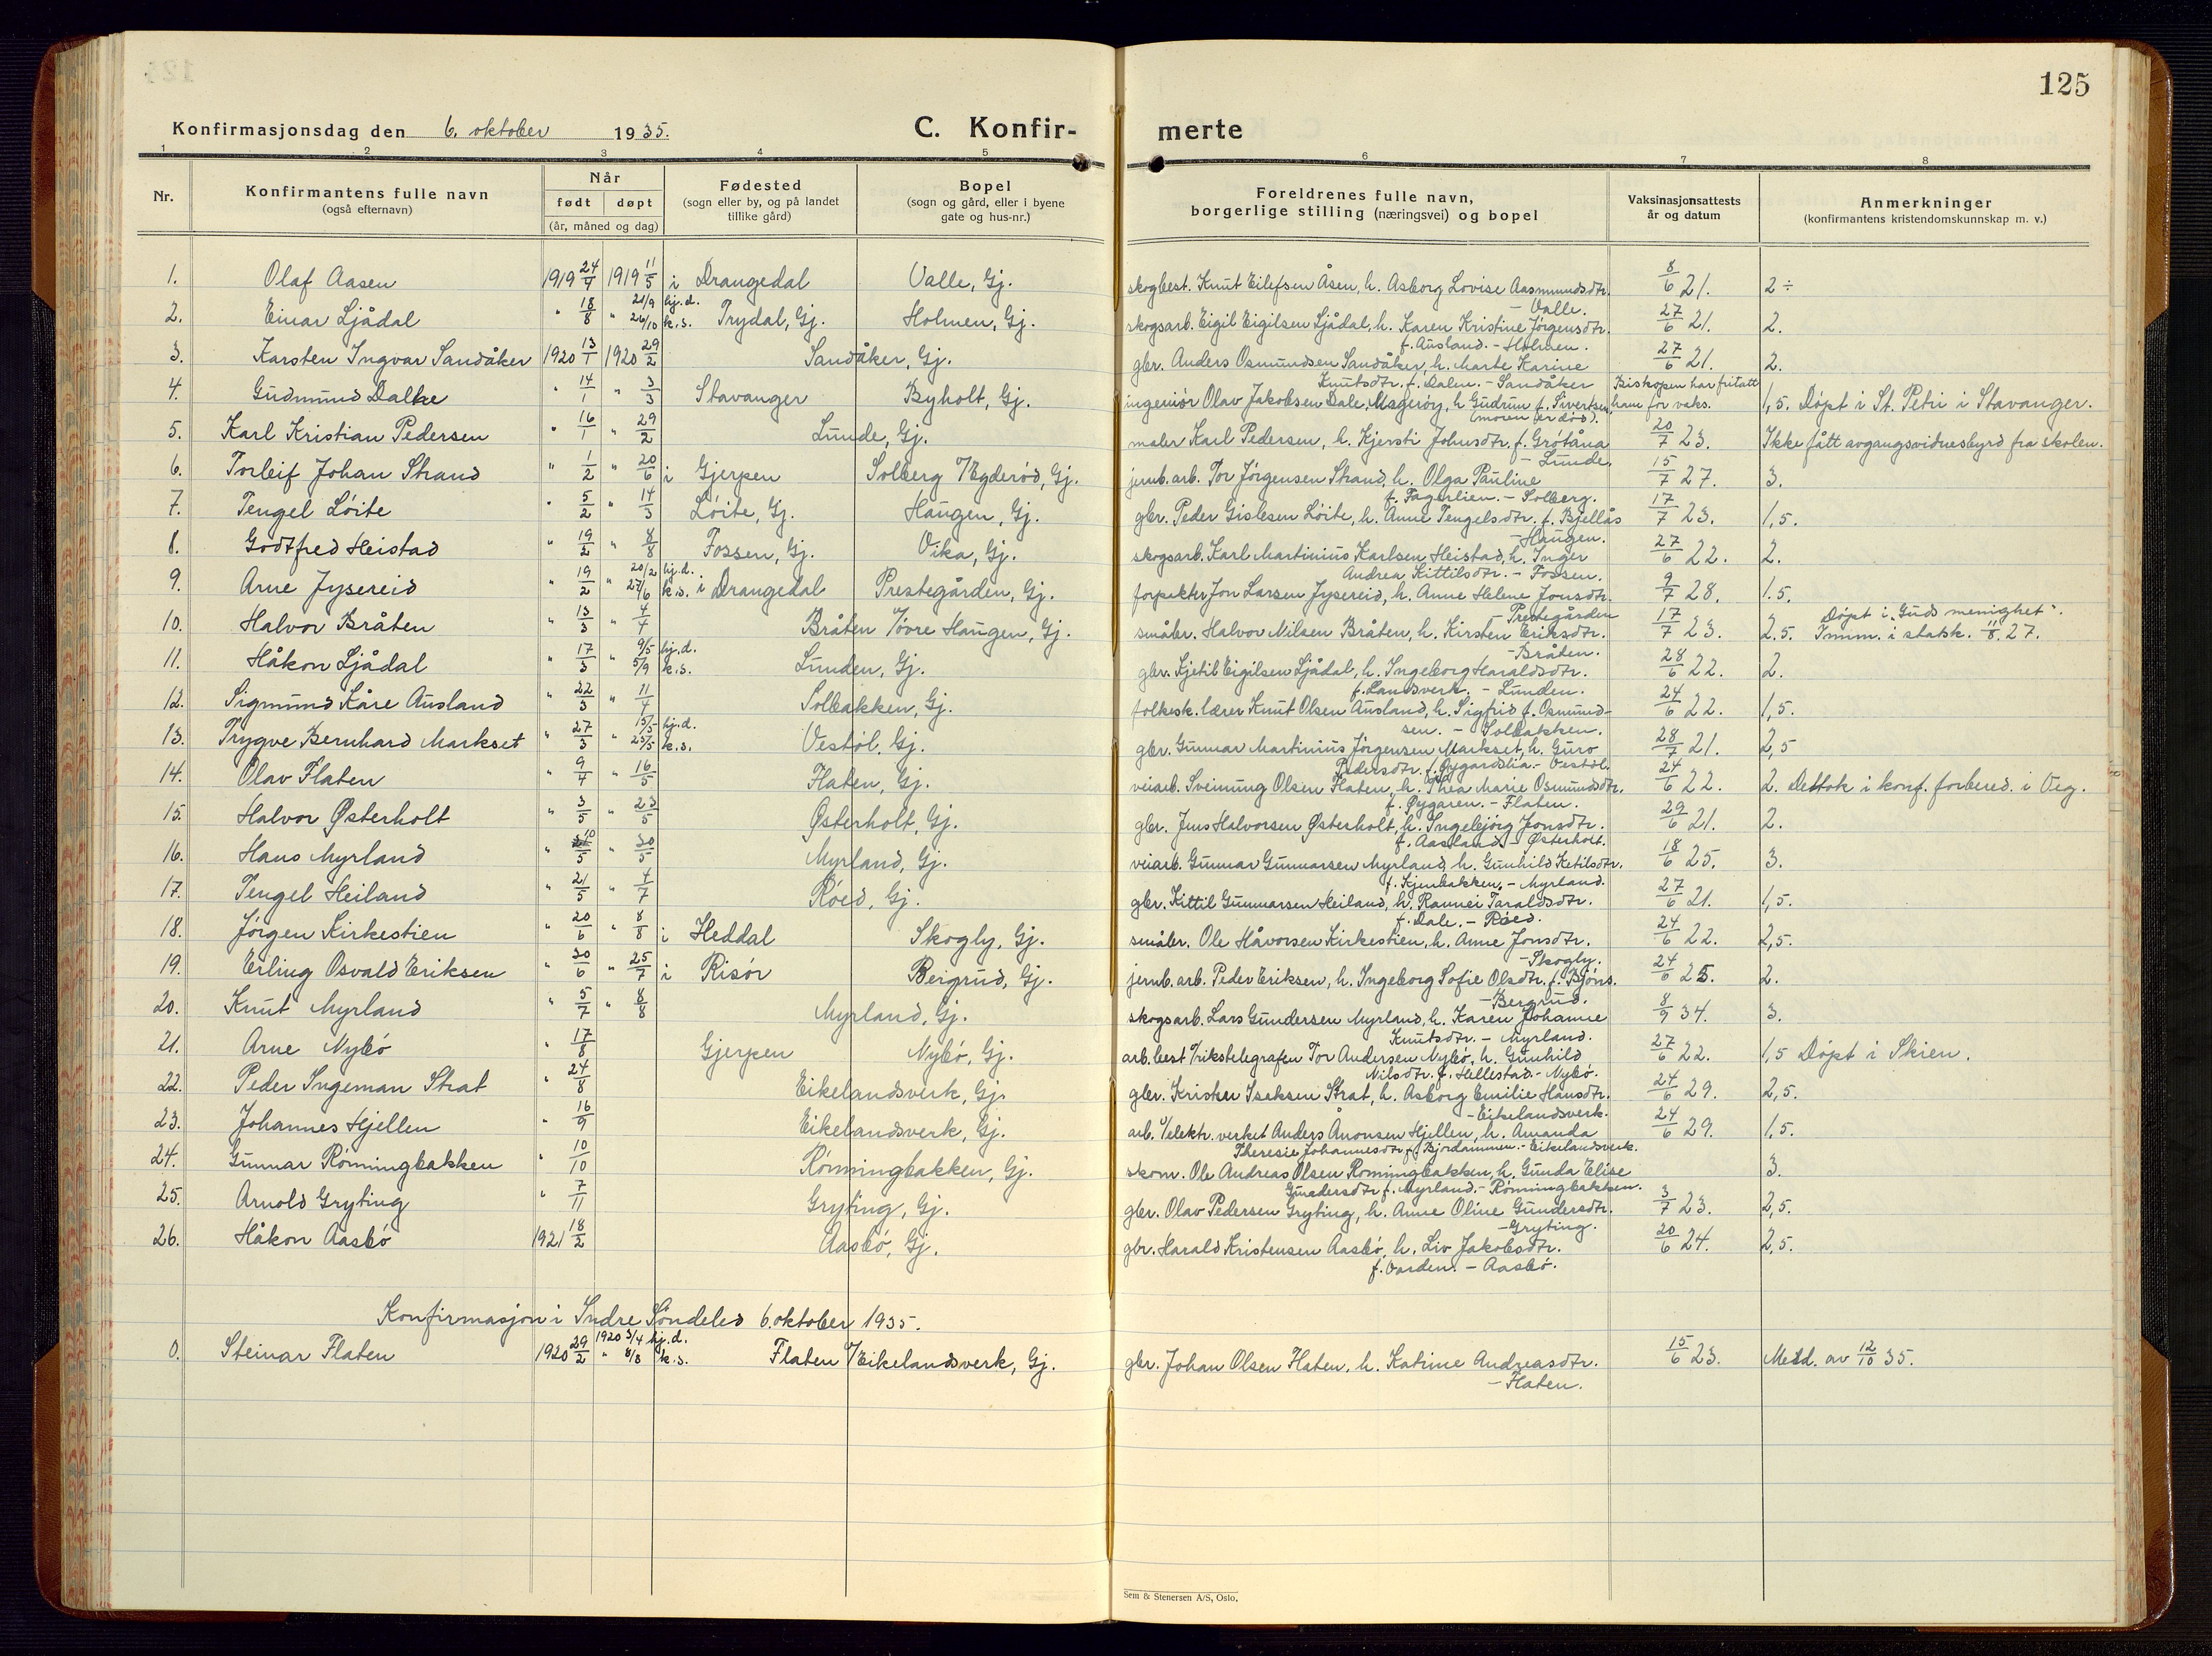 125
Konfirmasjonsdag den 6. oktober 1935.
C. Konfir-
merte
1 2 3 4 5 6 7 8
Nr.
Konfirmantens fulle navn
(også efternavn)
Når
født døpt
(år, måned og dag)
Fødested
(sogn eller by, og på landet
tillike gård)
Bopel
(sogn og gård, eller i byene
gate og hus-nr.)
Foreldrenes fulle navn,
borgerlige stilling (næringsvei) og bopel
Vaksinasjonsattests
år og datum
Anmerkninger
(konfirmantens kristendomskunnskap m. v.)
1. Olaf Aasen 1919 24/4 1919 11/5 i Drangedal Valle, Gj. skogbest. Knut Eilefsen Åsen, h. Asborg Lovise Aasmundsdtr. 8/6 21. 2÷
- Valle.
2. Einar Ljådal " 18/8 " 21/9 hj.d. 26/10 k.s. Trydal, Gj. Holmen, Gj. skogsarb. Eigil Eigilsen Ljådal, h. Karen Kristine Jørgensdtr. 27/6 21. 2.
f. Ausland. - Holmen.
3. Karsten Ingvar Sandåker 1920 13/1 1920 29/2 Sandåker, Gj. gbr. Anders Osmundsen Sandåker, h. Marte Karine 27/6 21. 2.
Knutsdtr. f. Dalen. - Sandåker
4. Gudmund Dalke " 14/1 " 3/3 Stavanger Byholt, Gj. ingeniør Olav Jakobsen Dale, Magerøy, h. Gudrun f. Sivertsen Biskopen har fritatt ham for vaks. 1,5. Døpt i St. Petri i Stavanger.
(moren er død).
5. Karl Kristian Pedersen " 16/1 " 29/2 Lunde, Gj. maler Karl Pedersen, h. Kjersti Johnsdtr. f. Grótåna 20/7 23. Ikke fått avgangsvidnesbyrd fra skolen.
- Lunde.
6. Torleif Johan Strand " 1/2 " 20/6 i Gjerpen Solberg /Egderød, Gj. jernb.arb. Tor Jørgensen Strand, h. Olga Pauline 15/7 27. 3.
f. Fagerlien. - Solberg.
7. Tengel Løite " 5/2 " 14/3 Løite, Gj. Haugen, Gj. gbr. Peder Gislesen Løite, h. Anne Tengelsdtr. f. Bjellås 17/7 23. 1,5.
- Haugen.
8. Godtfred Heistad " 19/2 " 8/8 Fossen, Gj. Vika, Gj. skogsarb. Karl Martinius Karlsen Heistad, h. Inger 27/6 22. 2.
Andrea Kittilsdtr. - Fossen.
9. Arne Jysereid " 19/2 " 20/2 hj.d. 27/6 k.s. i Drangedal Prestegården, Gj. forpakter Jon Larsen Jysereid, h. Anne Helene Jonsdtr. 9/7 28. 1.5.
Prestegården
10. Halvor Bråten " 13/3 " 4/4 Bråten /øvre Haugen, Gj. småbr. Halvor Nilsen Bråten, h. Kirsten Eriksdtr. 17/7 23. 2.5. Døpt i „Guds menighet". Innm. i statsk. 11/8 27.
- Bråten.
11. Håkon Ljådal " 17/3 " 9/5 hj.d. 5/9 k.s. Lunden, Gj. gbr. Kjetil Eigilsen Ljådal, h. Ingeborg Haraldsdtr. 28/6 22. 2.
f. Landsverk. - Lunden.
12. Sigmund Kåre Ausland " 22/3 " 11/4 Solbakken, Gj. folkesk.lærer Knut Olsen Ausland, h. Sigfrid f. Osmund- 24/6 22. 1,5.
sen. - Solbakken.
13. Trygve Bernhard Markset " 27/3 " 15/5 hj.d. 23/5 k.s. Vestøl, Gj. gbr. Gunnar Martinius Jørgensen Markset, h. Guro 28/7 21. 2,5
Pedersdtr. f. Øygardslia. - Vestøl.
14. Olav Flaten " 9/4 " 16/5 Flaten, Gj. veiarb. Sveinung Olsen Flaten, h. Thea Marie Osmundsdtr. 24/6 22. 2. Deltok i konf. forbered. i Veg.
f. Øygaren. - Flaten.
15. Halvor Østerholt " 3/5 " 23/5 Østerholt, Gj. gbr. Jens Halvorsen Østerholt, h. Ingebjørg Jonsdtr. 29/6 21. 2.
f. Aasland. - Østerholt.
16. Hans Myrland " 10/5 " 30/5 Myrland, Gj. veiarb. Gunnar Gunnarsen Myrland, h. Gunhild Ketilsdtr. 18/6 25. 3.
f. Kjenbakken. - Myrland.
17. Tengel Heiland " 21/5 " 4/7 Røed, Gj. gbr. Kittil Gunnarsen Heiland, h. Rannei Taraldsdtr. 27/6 21. 1,5.
f. Dale. - Røed.
18. Jørgen Kirkestien " 20/6 " 8/8 i Heddal Skogly, Gj. småbr. Ole Håvorsen Kirkestien, h. Anne Jonsdtr. 24/6 22. 2,5.
- Skogly.
19. Erling Osvald Eriksen " 30/6 " 25/7 i Risør Bergrud, Gj. jernb.arb. Peder Eriksen, h. Ingeborg Sofie Olsdtr. f. Bjöns. 24/6 25. 2.
- Bergrud.
20. Knut Myrland " 5/7 " 8/8 Myrland, Gj. skogsarb. Lars Gundersen Myrland, h. Karen Johanne 8/9 34. 3.
Knutsdtr. - Myrland.
21. Arne Nybø " 17/8 Gjerpen Nybø, Gj. arb.best v/rikstelegrafen Tor Andersen Nybø, h. Gunhild 27/6 22. 1,5 Døpt i Skien.
Nilsdtr. f. Hellestad. - Nybø.
22. Peder Ingeman Strat " 24/8 Eikelandsverk, Gj. gbr. Krister Iseksen Strat, h. Asborg Emilie Hansdtr. 24/6 29. 2,5.
- Eikelandsverk.
23. Johannes Hjellen " 16/9 Eikelandsverk, Gj. arb. v/elektr. verket Anders Ånonsen Hjellen, h. Amanda 24/6 29. 1,5.
Theresie Johannesdtr. f. Bjordammen. - Eikelandsverk.
24. Gunnar Rønningbakken " 10/10 Rønningbakken, Gj. skom. Ole Andreas Olsen Rønningbakken, h. Gunda Elise 3.
Gundersdtr f. Myrland. - Rønningbakken.
25. Arnold Gryting " 7/11 Gryting, Gj. gbr. Olav Pedersen Gryting, h. Anne Oline Gundersdtr. 3/7 23. 2,5.
- Gryting.
26. Håkon Aasbø 1921 18/2 Aasbø, Gj. gbr. Harald Kristensen Aasbø, h. Liv Jakobsdtr. 20/6 24. 2,5.
f. Varden. - Aasbø.
Konfirmasjon i Indre Søndeled 6. oktober 1935.
0. Steinar Flaten 1920 29/2 1920 3/4 hj.d. " 8/8 k.s. Flaten /Eikelandsverk, Gj. gbr. Johan Olsen Flaten, h. Katrine Andreasdtr. 15/6 23. Meld. av 12/10 35.
- Flaten.
Sem & Stenersen A/S, Oslo.